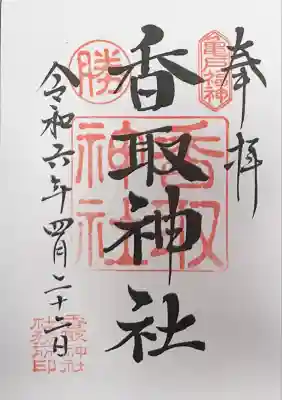 奉拝
亀戸福神
勝
香取神社
香取神社
令和六年四月二十二日
香取神社
社務所印